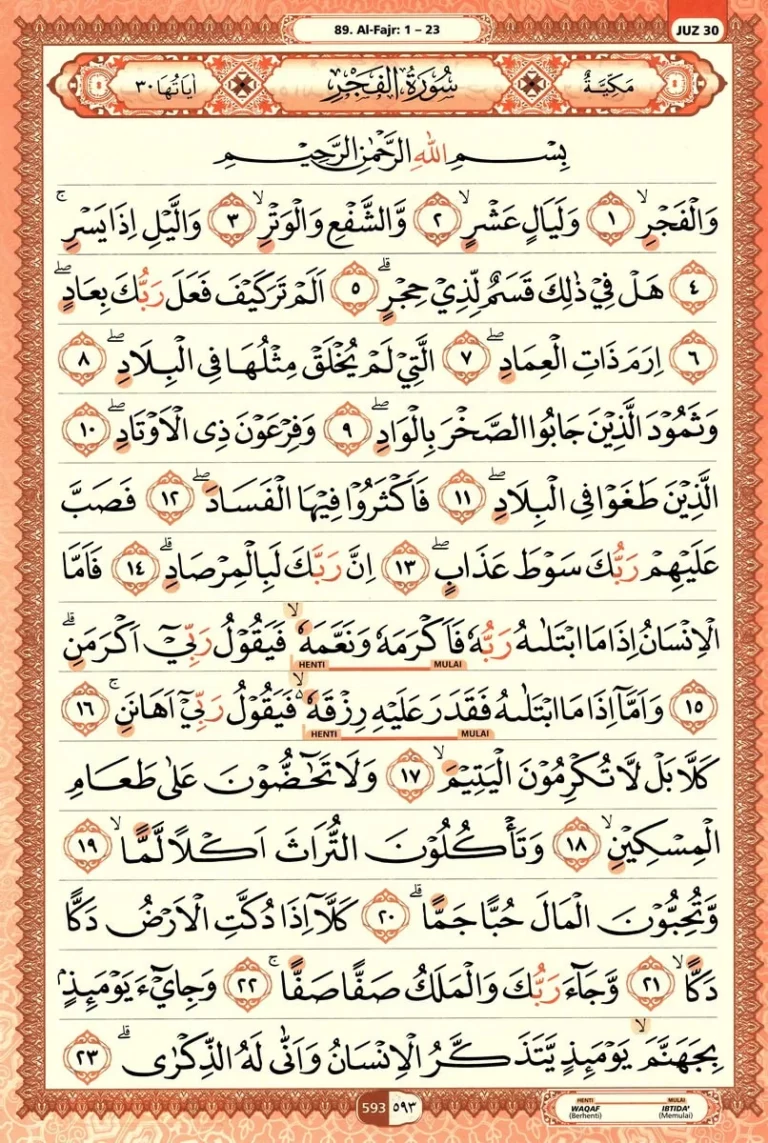 89. Al-Fajr: 1 – 23
JUZ 30
مَكِّيَّةٌ
سُوْرَةُ الْفَجْرِ
اٰيَاتُهَا ٣٠
بِسْمِ اللّٰهِ الرَّحْمٰنِ الرَّحِيْمِ
وَالْفَجْرِۙ ١ وَلَيَالٍ عَشْرٍۙ ٢ وَّالشَّفْعِ وَالْوَتْرِۙ ٣ وَالَّيْلِ اِذَا يَسْرِۚ
٤ هَلْ فِيْ ذٰلِكَ قَسَمٌ لِّذِيْ حِجْرٍۗ ٥ اَلَمْ تَرَ كَيْفَ فَعَلَ رَبُّكَ بِعَادٍۖ
٦ اِرَمَ ذَاتِ الْعِمَادِۖ ٧ الَّتِيْ لَمْ يُخْلَقْ مِثْلُهَا فِى الْبِلَادِۖ ٨
وَثَمُوْدَ الَّذِيْنَ جَابُوا الصَّخْرَ بِالْوَادِۖ ٩ وَفِرْعَوْنَ ذِى الْاَوْتَادِۖ ١٠
الَّذِيْنَ طَغَوْا فِى الْبِلَادِۖ ١١ فَاَكْثَرُوْا فِيْهَا الْفَسَادَۖ ١٢ فَصَبَّ
عَلَيْهِمْ رَبُّكَ سَوْطَ عَذَابٍۖ ١٣ اِنَّ رَبَّكَ لَبِالْمِرْصَادِۗ ١٤ فَاَمَّا
الْاِنْسَانُ اِذَا مَا ابْتَلٰىهُ رَبُّهٗ فَاَكْرَمَهٗ وَنَعَّمَهٗۙ فَيَقُوْلُ رَبِّيْٓ اَكْرَمَنِۗ
HENTI MULAI
١٥ وَاَمَّآ اِذَا مَا ابْتَلٰىهُ فَقَدَرَ عَلَيْهِ رِزْقَهٗۙ فَيَقُوْلُ رَبِّيْٓ اَهَانَنِۚ ١٦
HENTI MULAI
كَلَّا بَلْ لَّا تُكْرِمُوْنَ الْيَتِيْمَۙ ١٧ وَلَا تَحٰۤضُّوْنَ عَلٰى طَعَامِ
الْمِسْكِيْنِۙ ١٨ وَتَأْكُلُوْنَ التُّرَاثَ اَكْلًا لَّمًّاۙ ١٩
وَّتُحِبُّوْنَ الْمَالَ حُبًّا جَمًّاۗ ٢٠ كَلَّآ اِذَا دُكَّتِ الْاَرْضُ دَكًّا
دَكًّاۙ ٢١ وَّجَاۤءَ رَبُّكَ وَالْمَلَكُ صَفًّا صَفًّاۚ ٢٢ وَجِايْۤءَ يَوْمَىِٕذٍۢ
بِجَهَنَّمَۙ يَوْمَىِٕذٍ يَّتَذَكَّرُ الْاِنْسَانُ وَاَنّٰى لَهُ الذِّكْرٰىۗ ٢٣
593 ٥٩٣
HENTI MULAI
WAQAF IBTIDA'
(Berhenti) (Memulai)